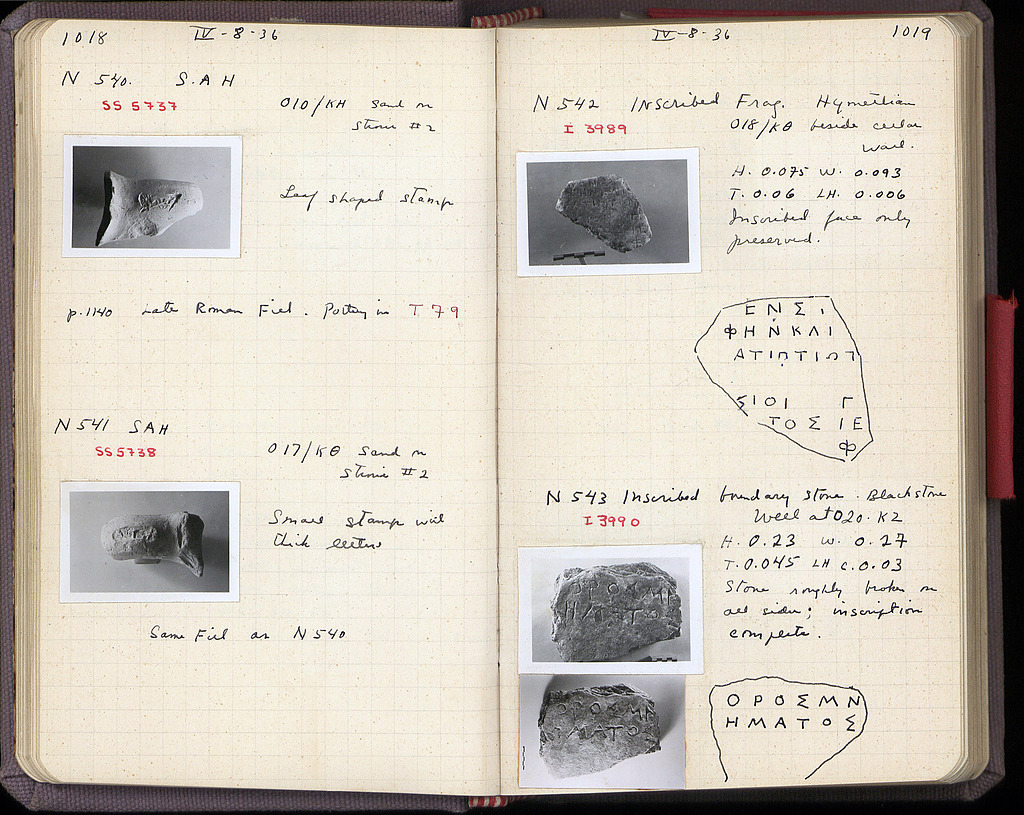 1018 IV-8-36
N 540. S.A H
SS 5737
O10/KH Sand on
Stosis #2
Leaf shaped stamp
p.1140 Late Roman Fill. Pottery in T 79
N 541 SAH
SS 5738
O17/KΘ Sand on
#2
Small stamp with
thick letters
Same Fill as N 540
IV-8-36 1019
N 542 Inscribed Frag. Hymettian
I 3989
O18/KΘ beside cellar
wall.
H. 0.075 W. 0.093
T. 0.06 LH. 0.006
Inscribed face only
preserved.
ΕΝΣΙ
ΦΗΝΚΛΙ
ΑΤΙΩΤΙΩΤ
ΣΙΟΙ Γ
ΤΟΣ ΙΕ
Φ
N 543 Inscribed boundary stone. Black stone
I 3990
Well at O20. KZ
H. 0.23 W. 0.27
T. 0.045 LH c. 0.03
Stone roughly broken on
all sides; inscription
complete.
ΟΡΟΣΜΝ
ΗΜΑΤΟΣ
ΟΡΟΣΜΝ
ΗΜΑΤΟΣ
ΟΡΟΣΜΝ
ΗΜΑΤΟΣ